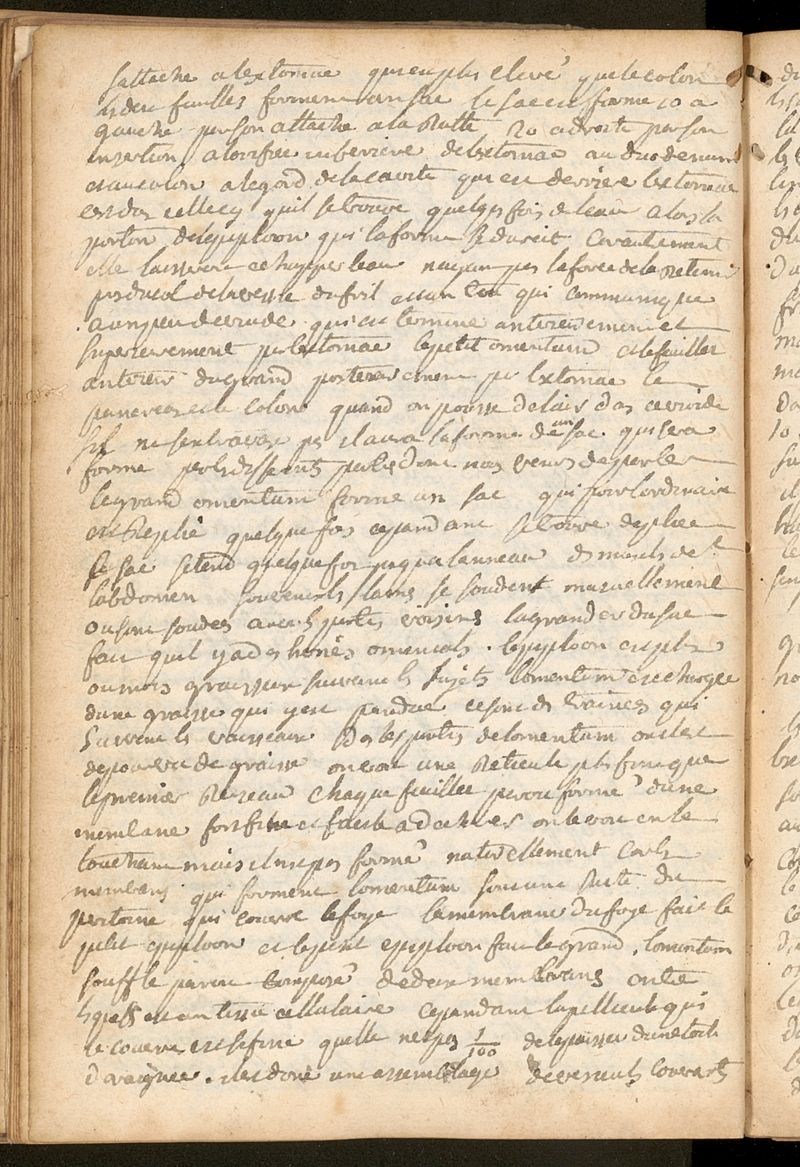 sattache a lestomac qui est plus elevé que le colon
les deux feuilles forment un sac le sac est formé 1o a
gauche par son attache a la Ratte 2o a droite par son
insertion a lorifice inferieure de lestomac au duodenum
et au colon a legard de la cavité qui est derriere lestomac
cest dans cellecy quil se trouve quelquefois de leau alors la
portion de lepiploon qui la forme
elle laissera echapper leau nayant pas la force de la retenir
col de la vessie du fiel est un trou qui communique
a un peu de vuide qui est terminé anterieurement et
superieurement par lestomac le petit omentum et le feuillet
anterieur du grand posterieurement par lestomac le
pancreas et le colon quand on pousse de lair dans ce vuide
sil ne sextravase pas il aura la forme de un sac qui sera
formé par les differents parties dont nous venons de parler
le grand omentum forme un sac qui pour lordinaire
est Replié quelque fois cependant se trouve deplié
le sac setend quelquefois jusqua lanneau des muscles de
labdomen souvent les lames se soudent mutuellement
ou sont soudées avec les parties voisines la grandeur du sac
fait quil y a des hernies omentals. lepiploon est plus
ou moins graisseux suivant les sujets lomentum est chargé
dune graisse qui y est pendue ce sont des trainées qui
suivent les vaisseaux dans les parties de lomentum ou il est
depourvu de graisse on voit une Reticule plus fine que
le premier Rezeau chaque feuillet paroit formé dune
membrane fort fine et facile a dechirer on le voit en le
touchant mais il nest pas formé naturellement car les
membranes qui forment lomentum sont une suite du
peritoine qui couvre le foye la membrane du foye fait le
petit epiploon et le petit epiploon fait le grand, lomentum
soufflé paroit composé de deux membranes entre
lesquels est un tissu cellulaire cependant la pellicule qui
le couvre est si fine quelle nest pas 1/100 de lepaisseur dune toile
daraignée. il est donc un assemblage de vaisseaux couverts